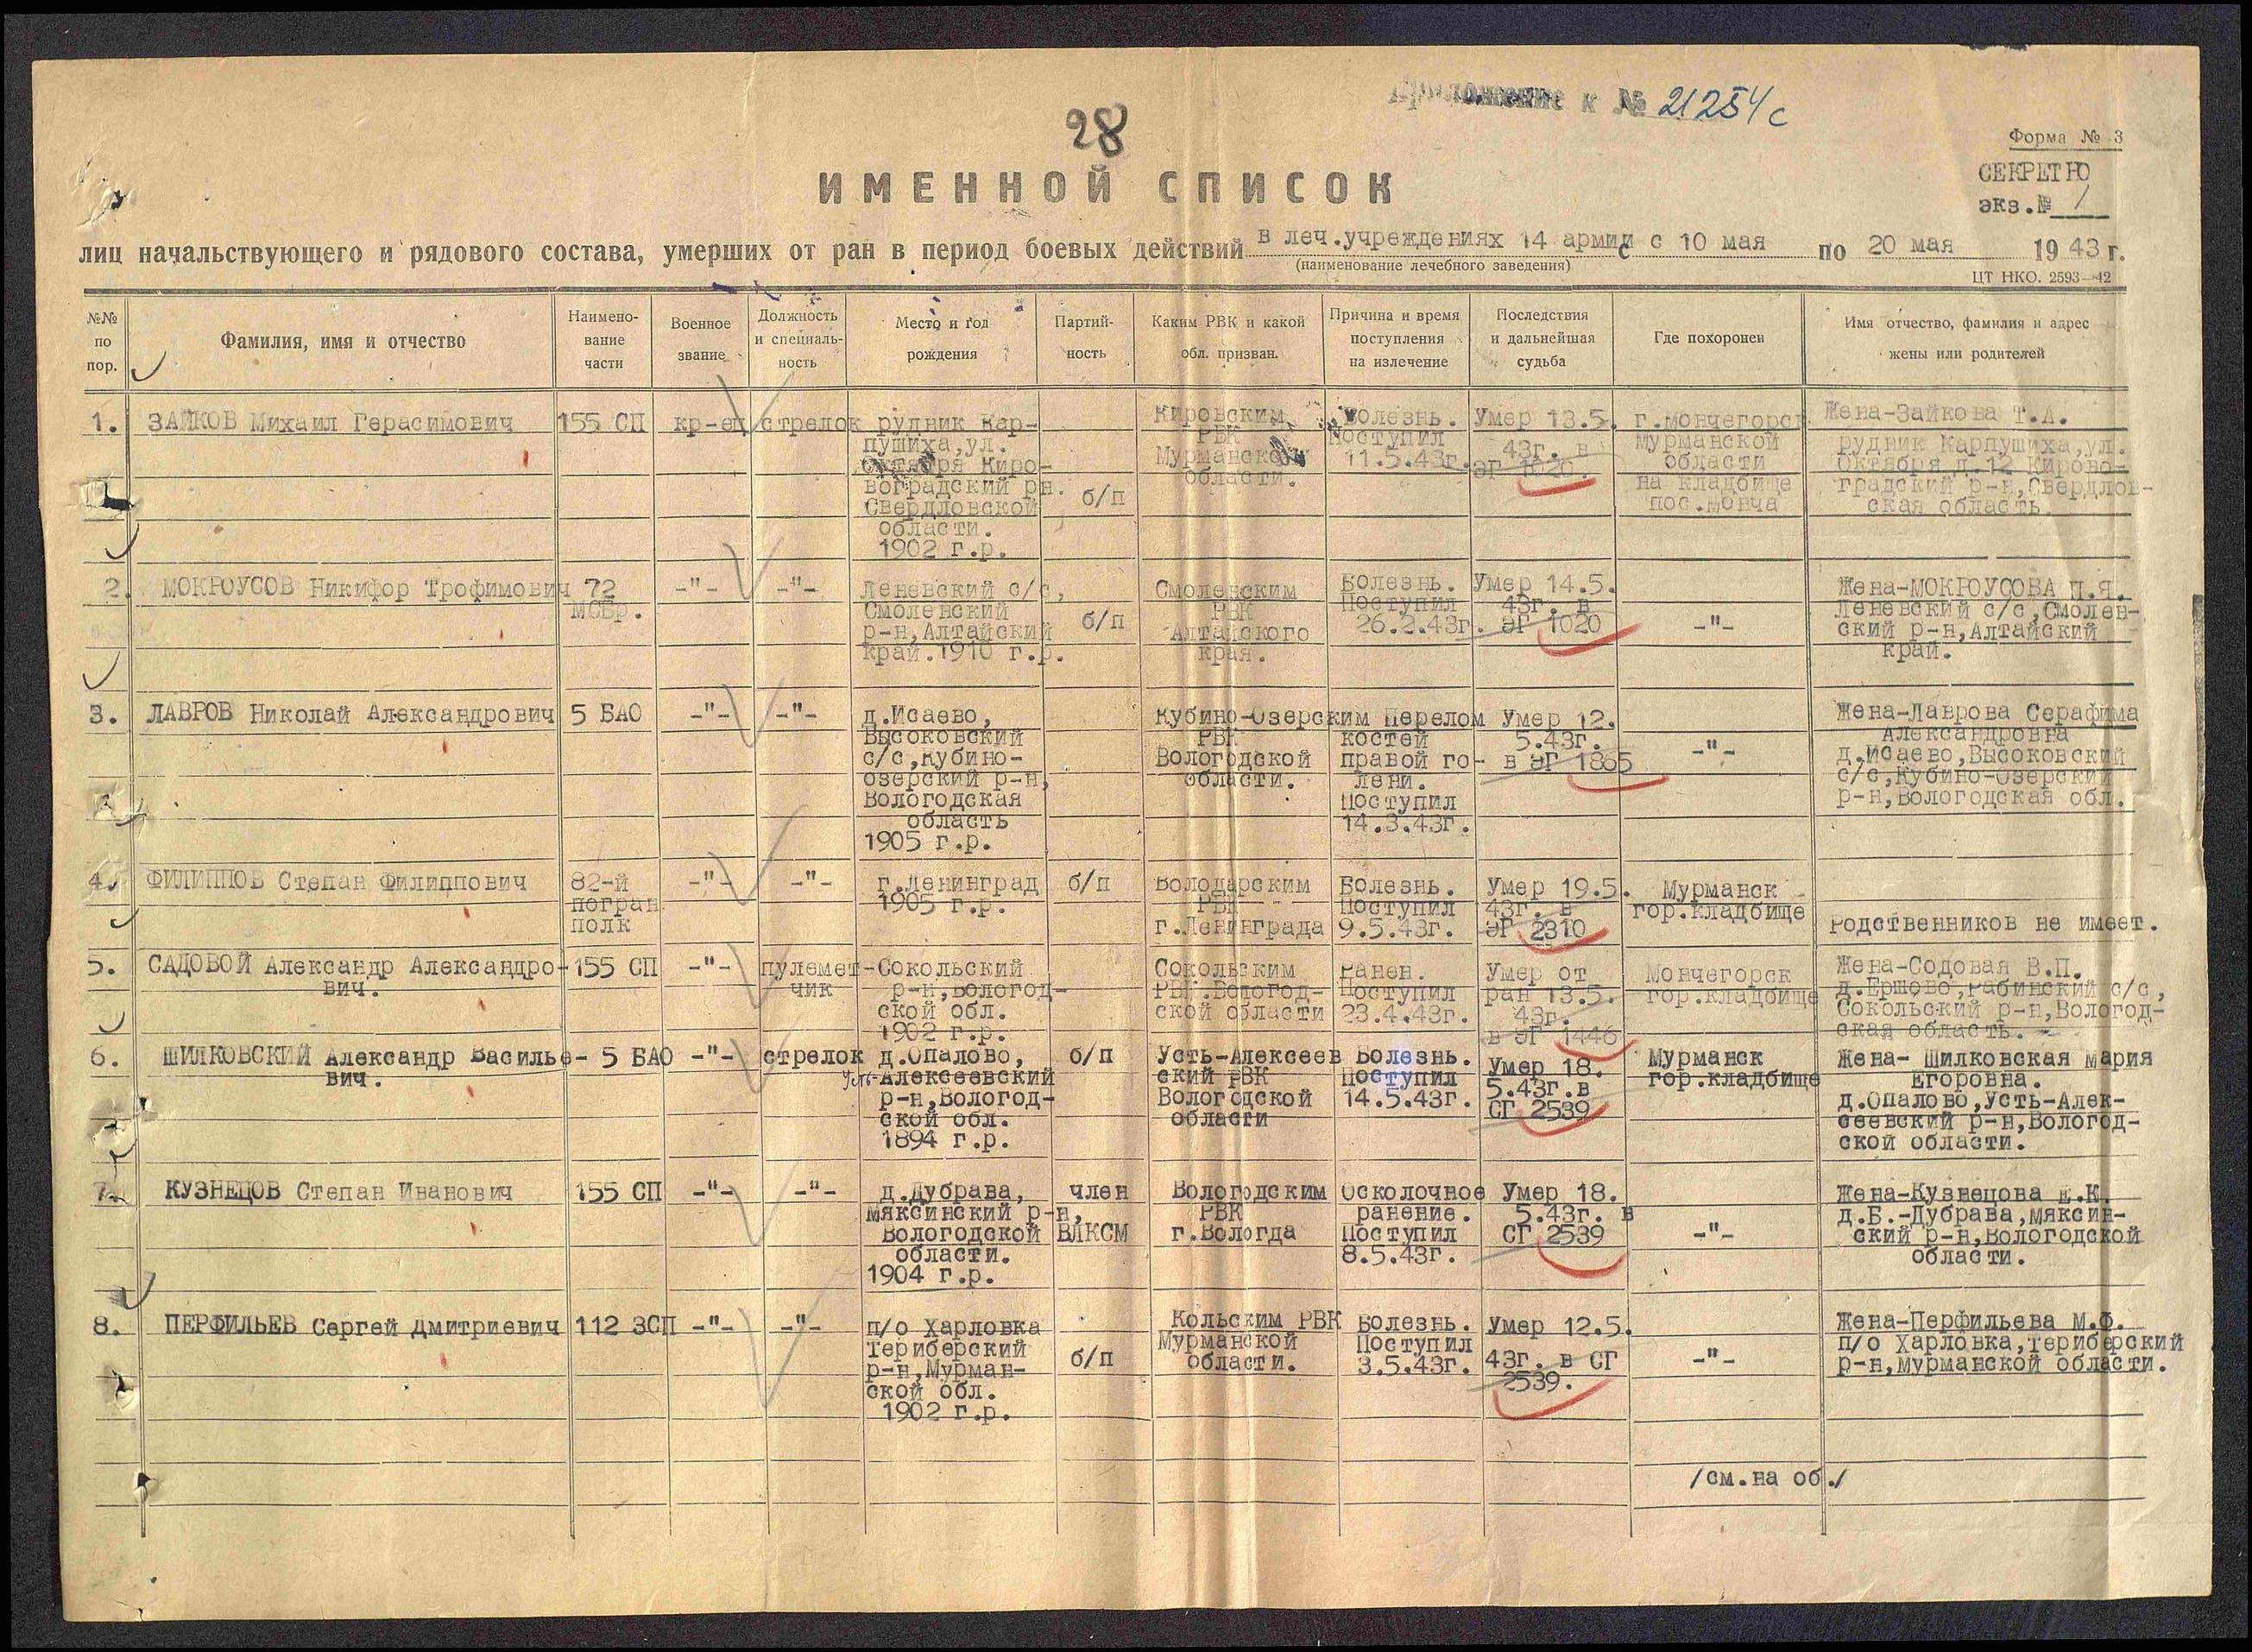 Приложение к № 21254с
28
Форма № 3
ИМЕННОЙ СПИСОК
СЕКРЕТНО
экз.№ 1
лиц начальствующего и рядового состава, умерших от ран в период боевых действий в леч.учреждениях 14 армии с с 10 мая по 20 мая 1943 г.
(наименование лечебного заведения)
ЦТ НКО. 2593—42
№№ по пор.
Фамилия, имя и отчество
Наимено-
вание
части
Военное
звание
Должность
и специаль-
ность
Место и год
рождения
Партий-
ность
Каким РВК и какой
обл. призван.
Причина и время
поступления
на излечение
Последствия
и дальнейшая
судьба
Где похоронен
Имя отчество, фамилия и адрес
жены или родителей
1.
ЗАЙКОВ Михаил Герасимович
155 СП
кр-ец
стрелок
рудник Кар-
пушиха,ул.
Октября Киро-
воградский рн.
Свердловской
области.
1902 г.р.
б/п
Кировским
РВК
Мурманской
области.
Болезнь.
Поступил
11.5.43г.
Умер 13.5.
43г. в
ЭГ 1020.
г.Мончегорск
Мурманской
области
на кладбище
пос.Монча
Жена-Зайкова Т.А.
рудник Карпушиха,ул.
Октября д.12 Кирово-
градский р-н,Свердлов-
ская область.
2.
МОКРОУСОВ Никифор Трофимович
72
МСБр.
-"-
-"-
Леневский с/с,
Смоленский
р-н,Алтайский
край.1910 г.р.
б/п
Смоленским
РВК
Алтайского
края.
Болезнь.
Поступил
26.2.43г.
Умер 14.5.
43г. в
ЭГ 1020
-"-
Жена-МОКРОУСОВА П.Я.
Леневский с/с,Смолен-
ский р-н,Алтайский
край.
3.
ЛАВРОВ Николай Александрович
5 БАО
-"-
-"-
д.Исаево,
Высоковский
с/с,Кубино-
озерский р-н,
Вологодская
область
1905 г.р.
Кубино-Озерским
РВК
Вологодской
области.
Перелом
костей
правой го-
лени.
Поступил
14.3.43г.
Умер 12.
5.43г.
в ЭГ 1865
-"-
Жена-Лаврова Серафима
Александровна
д.Исаево,Высоковский
с/с,Кубино-Озерский
р-н,Вологодская обл.
4.
ФИЛИППОВ Степан Филиппович
82-й
погран
полк
-"-
-"-
г.Ленинград
1905 г.р.
б/п
Володарским
РВК
г.Ленинграда
Болезнь.
Поступил
9.5.43г.
Умер 19.5.
43г. в
ЭГ 2310
Мурманск
гор.кладбище
Родственников не имеет.
5.
САДОВОЙ Александр Александро-
вич.
155 СП
-"-
пулемет-
чик
Сокольский
р-н,Вологод-
ской обл.
1902 г.р.
Сокольским
РВК.Вологод-
ской области
Ранен.
Поступил
23.4.43г.
Умер от
ран 13.5.
43г.
в ЭГ 1446
Мончегорск
гор.кладбище
Жена-Содовая В.П.
д.Ершово,Рабинский с/с,
Сокольский р-н,Вологод-
ская область.
6.
ШИЛКОВСКИЙ Александр Василье-
вич.
5 БАО
-"-
стрелок
д.Опалово,
Усть-Алексеевский
р-н,Вологод-
ской обл.
1894 г.р.
б/п
Усть-Алексеев
ский РВК
Вологодской
области
Болезнь.
Поступил
14.5.43г.
Умер 18.
5.43г.в
СГ 2539
Мурманск
гор.кладбище
Жена- Шилковская Мария
Егоровна.
д.Опалово,Усть-Алек-
сеевский р-н,Вологод-
ской области.
7.
КУЗНЕЦОВ Степан Иванович
155 СП
-"-
-"-
д.Дубрава,
Мяксинский р-н,
Вологодской
области.
1904 г.р.
член
ВЛКСМ
Вологодским
РВК
г.Вологда
Осколочное
ранение.
Поступил
8.5.43г.
Умер 18.
5.43г. в
СГ 2539
-"-
Жена-Кузнецова Е.К.
д.Б.-Дубрава,Мяксин-
ский р-н,Вологодской
области.
8.
ПЕРФИЛЬЕВ Сергей Дмитриевич
112 ЗСП
-"-
-"-
п/о Харловка
Териберский
р-н,Мурман-
ской обл.
1902 г.р.
б/п
Кольским РВК
Мурманской
области.
Болезнь.
Поступил
3.5.43г.
Умер 12.5.
43г. в СГ
2539.
-"-
Жена-Перфильева М.Ф.
п/о Харловка,Териберский
р-н,Мурманской области.
/см.на об./